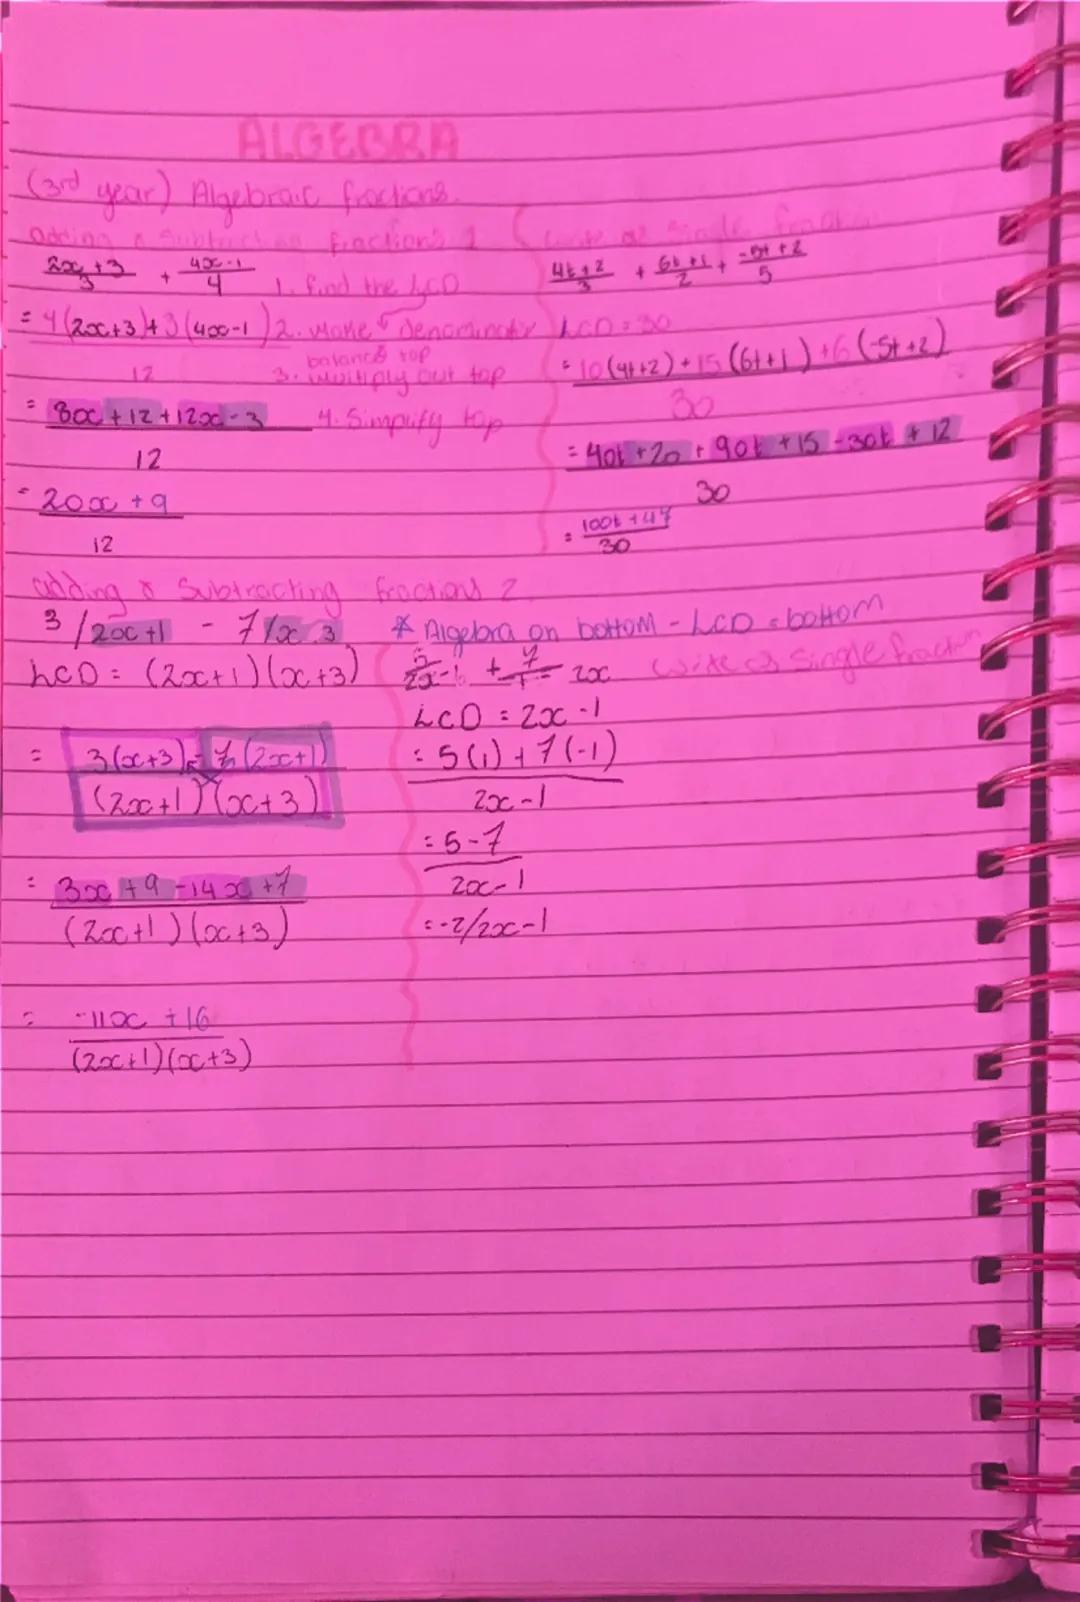 ALGEBRA
(3rd year) Algebraic fractions.
adding & Subtracting Fractions 1
2x+3/3 + 4x-1/4
1. find the LCD
= 4(2x+3)+3(4x-1)
12
2. make denominator
balance top
3. multiply out top
= 8x+12+12x-3
12
4. Simplify top
= 20x+9
12
Write as Single fraction
4t+2/3 + 6t+1/2 + -5t+2/5
LCD = 30
= 10(4t+2)+15(6t+1)+6(-5t+2)
30
= 40t+20+90t+15-30t+12
30
= 100t+47
30
adding & Subtracting fractions 2
3/2x+1 - 7/x 3
LCD = (2x+1)(x+3)
= 3(x+3)-7(2x+1)
(2x+1)(x+3)
= 3x+9-14x+7
(2x+1)(x+3)
= -11x+16
(2x+1)(x+3)
* Algebra on bottom - LCD = bottom
5/2x-1 + 7/1-2x
Write as Single fraction
LCD = 2x-1
= 5(1)+7(-1)
2x-1
= 5-7
2x-1
= -2/2x-1